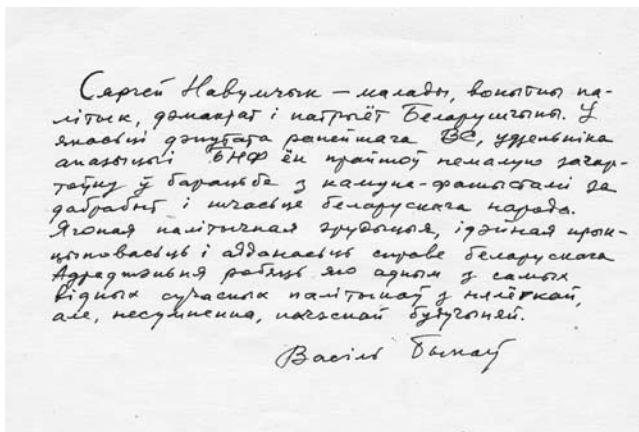 Сяргей Навумчык — малады, вопытны па-
літык, дэмакрат і патрыёт Беларушчыны. У
якасьці дэпутата ранейшага ВС, удзельніка
апазыцыі БНФ ён прайшоў немалую загар-
тоўку ў барацьбе з камуна-фашыстамі за
дабрабыт і шчасьце беларускага народа.
Ягоная палітычная эрудыцыя, ідэйная прын-
цыповасьць і адданасьць справе беларускага
Адраджэньня робяць яго адным з самых
відных сучасных палітыкаў з нялёгкай,
але, несумненна, пачэснай будучыняй.
Васіль Быкаў